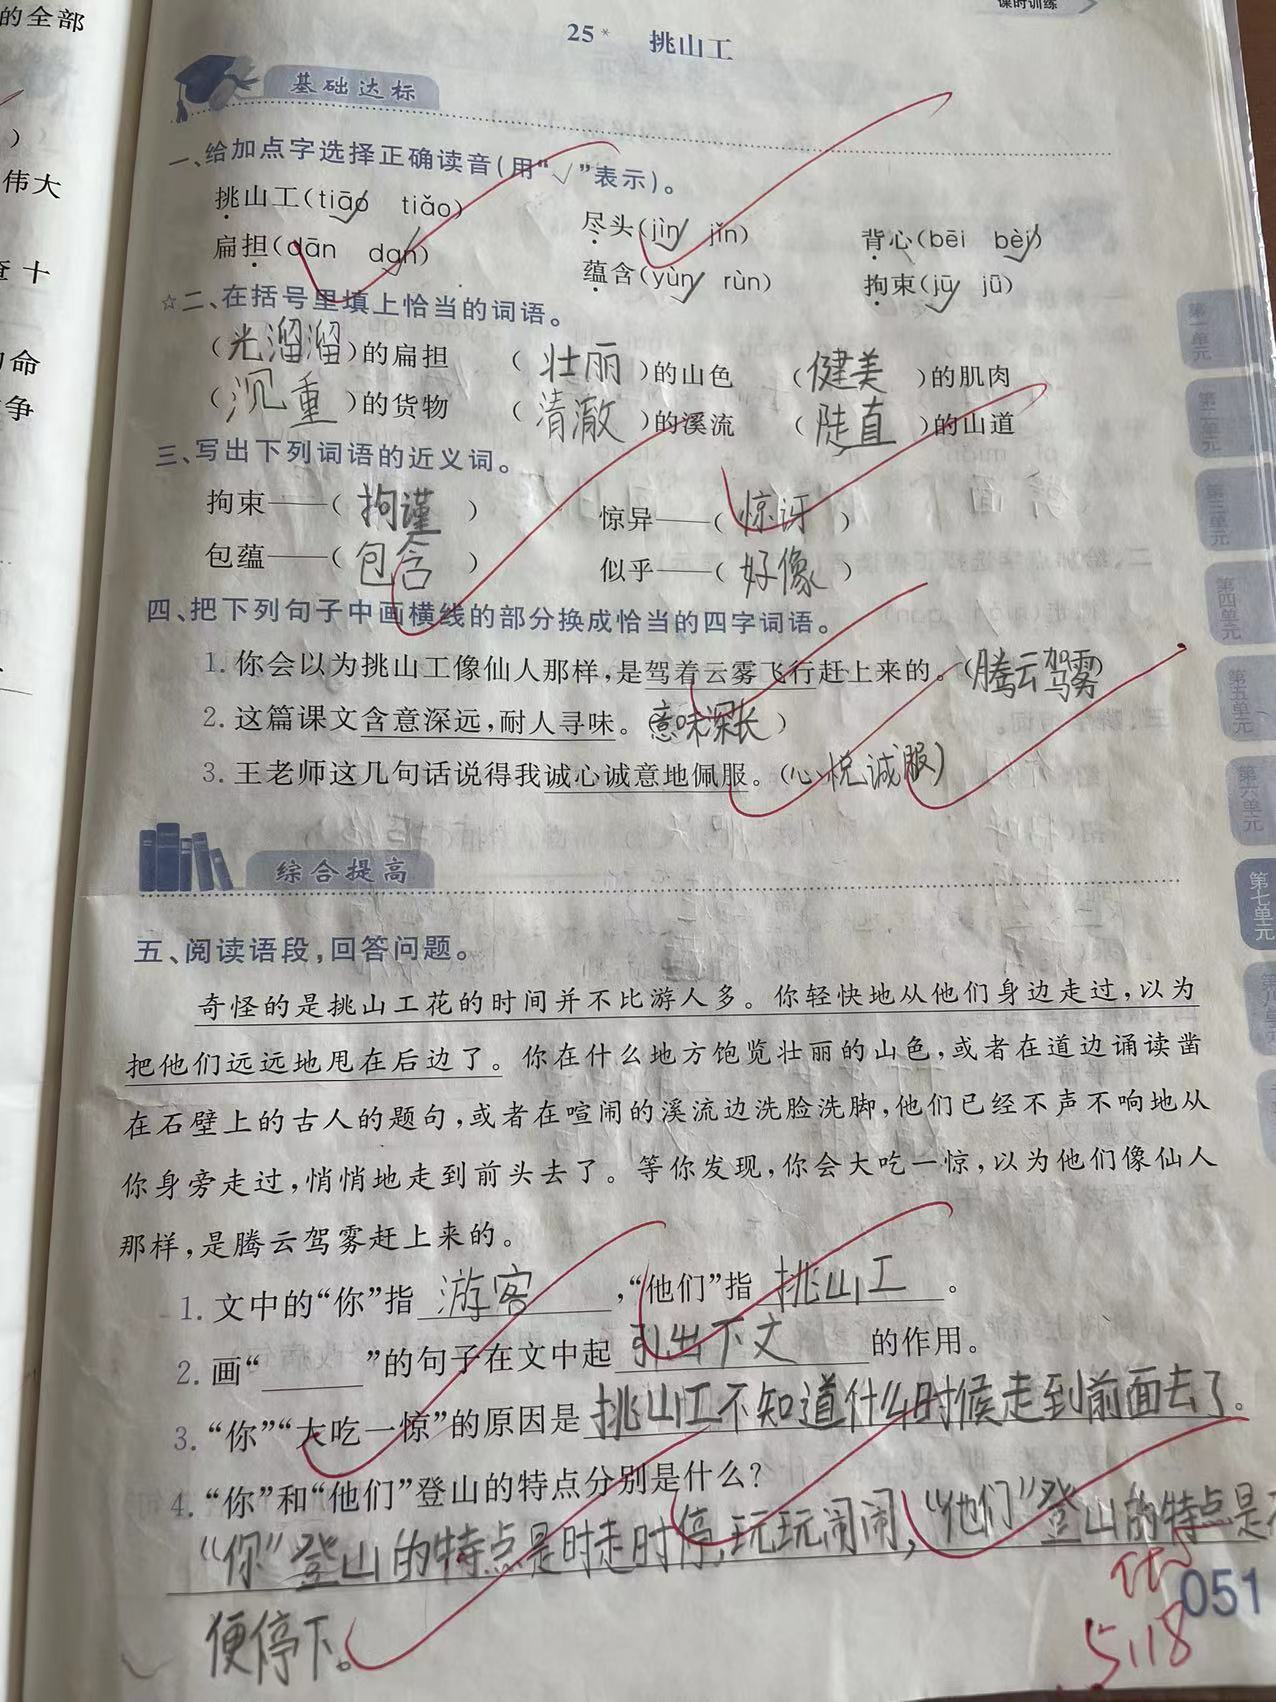 的全部
课时训练
25* 挑山工
)
基础达标
伟大
一、给加点字选择正确读音(用“√”表示)。
挑山工(tiāo tiǎo) 尽头(jìn jǐn) 背心(bēi bèi)
扁担(dān dan) 蕴含(yùn rùn) 拘束(jū jū)
十
☆二、在括号里填上恰当的词语。
(光溜溜)的扁担 (壮丽)的山色 (健美)的肌肉
命
(沉重)的货物 (清澈)的溪流 (陡直)的山道
争
三、写出下列词语的近义词。
拘束——(拘谨) 惊异——(惊讶)
包蕴——(包含) 似乎——(好像)
四、把下列句子中画横线的部分换成恰当的四字词语。
1.你会以为挑山工像仙人那样,是驾着云雾飞行赶上来的。(腾云驾雾)
2.这篇课文含意深远,耐人寻味。(意味深长)
3.王老师这几句话说得我诚心诚意地佩服。(心悦诚服)
第一单元
第二单元
第三单元
第四单元
第五单元
第六单元
第七单元
第八单元
综合提高
五、阅读语段,回答问题。
奇怪的是挑山工花的时间并不比游人多。你轻快地从他们身边走过,以为
把他们远远地甩在后边了。你在什么地方饱览壮丽的山色,或者在道边诵读凿
在石壁上的古人的题句,或者在喧闹的溪流边洗脸洗脚,他们已经不声不响地从
你身旁走过,悄悄地走到前头去了。等你发现,你会大吃一惊,以为他们像仙人
那样,是腾云驾雾赶上来的。
1.文中的“你”指游客,“他们”指挑山工。
2.画“____”的句子在文中起引出下文的作用。
3.“你”“大吃一惊”的原因是挑山工不知道什么时候走到前面去了。
4.“你”和“他们”登山的特点分别是什么?
“你”登山的特点是时走时停,玩玩闹闹,“他们”登山的特点是不
便停下。
优
051
5.18